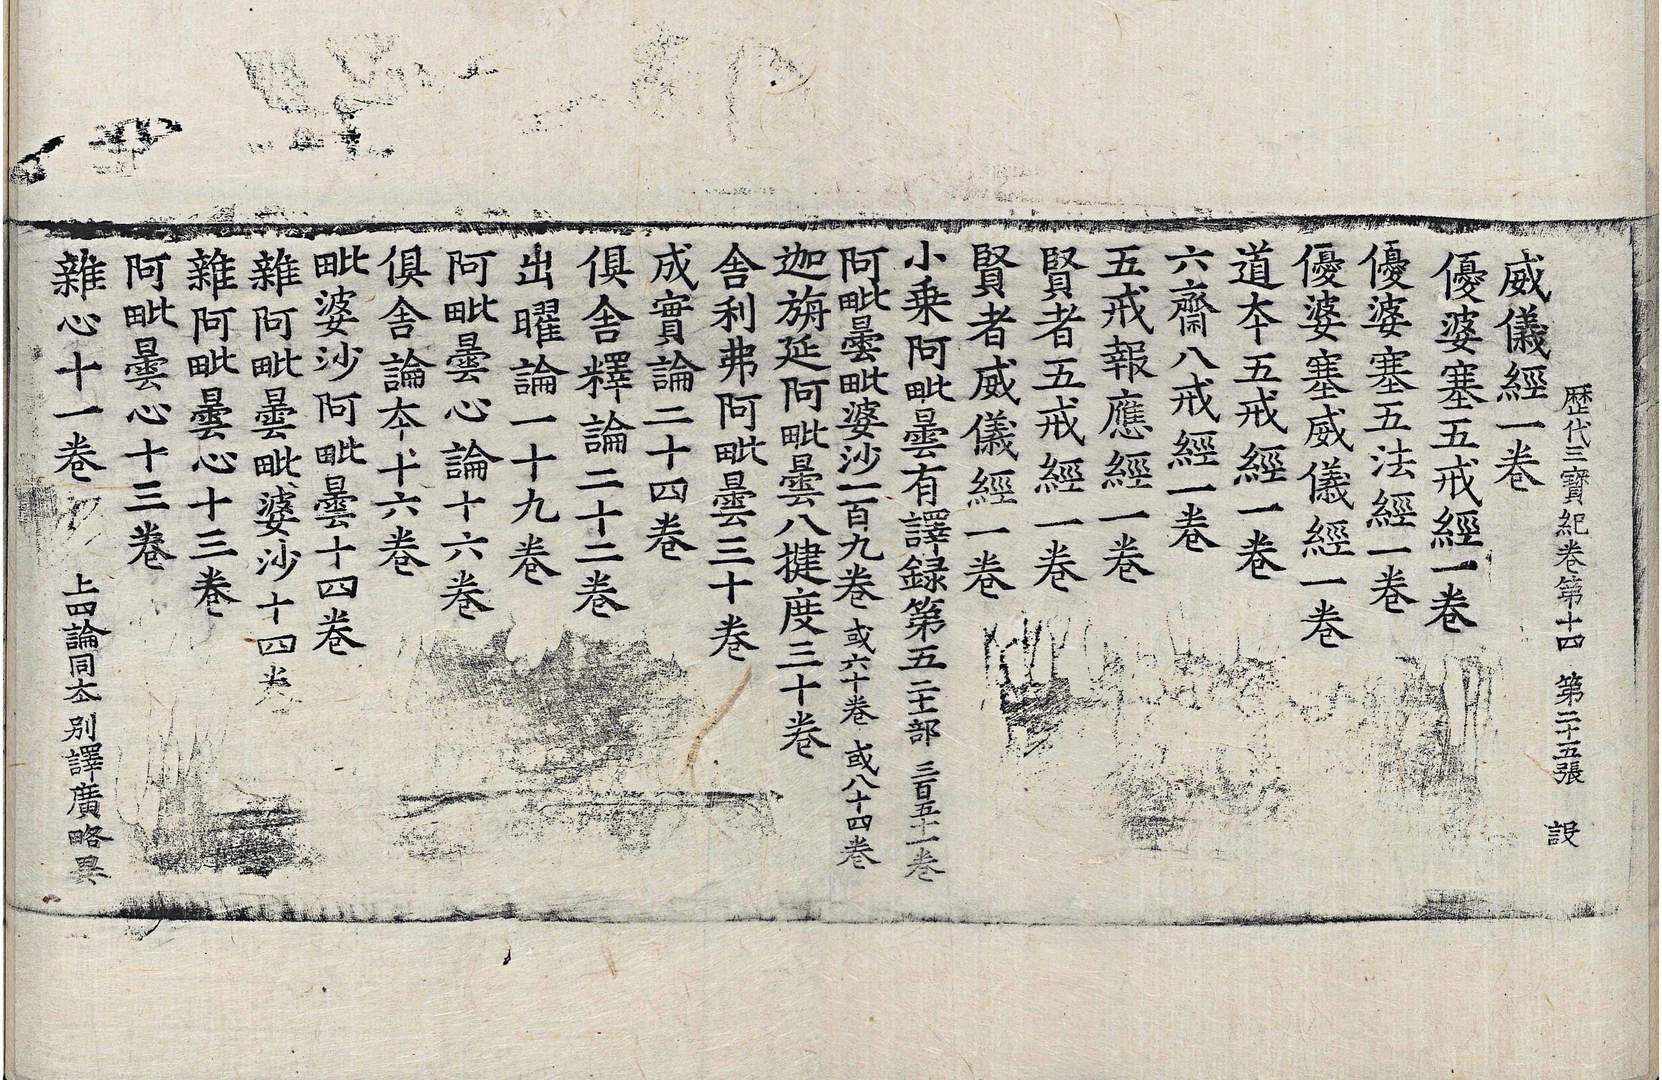 歷代三寶紀卷第十四 第二十五張 設
威儀經一卷
優婆塞五戒經一卷
優婆塞五法經一卷
優婆塞威儀經一卷
道本五戒經一卷
六齋八戒經一卷
五戒報應經一卷
賢者五戒經一卷
賢者威儀經一卷
小乘阿毗曇有譯録第五 二十一部 三百五十一卷
阿毗曇毗婆沙一百九卷 或六十卷 或八十四卷
迦旃延阿毗曇八揵度三十卷
舍利弗阿毗曇三十卷
成實論二十四卷
俱舍釋論二十二卷
出曜論一十九卷
阿毗曇心論十六卷
俱舍論本十六卷
毗婆沙阿毗曇十四卷
雜阿毗曇毗婆沙十四卷
雜阿毗曇心十三卷
阿毗曇心十三卷
雜心十一卷 上四論同本別譯廣略異